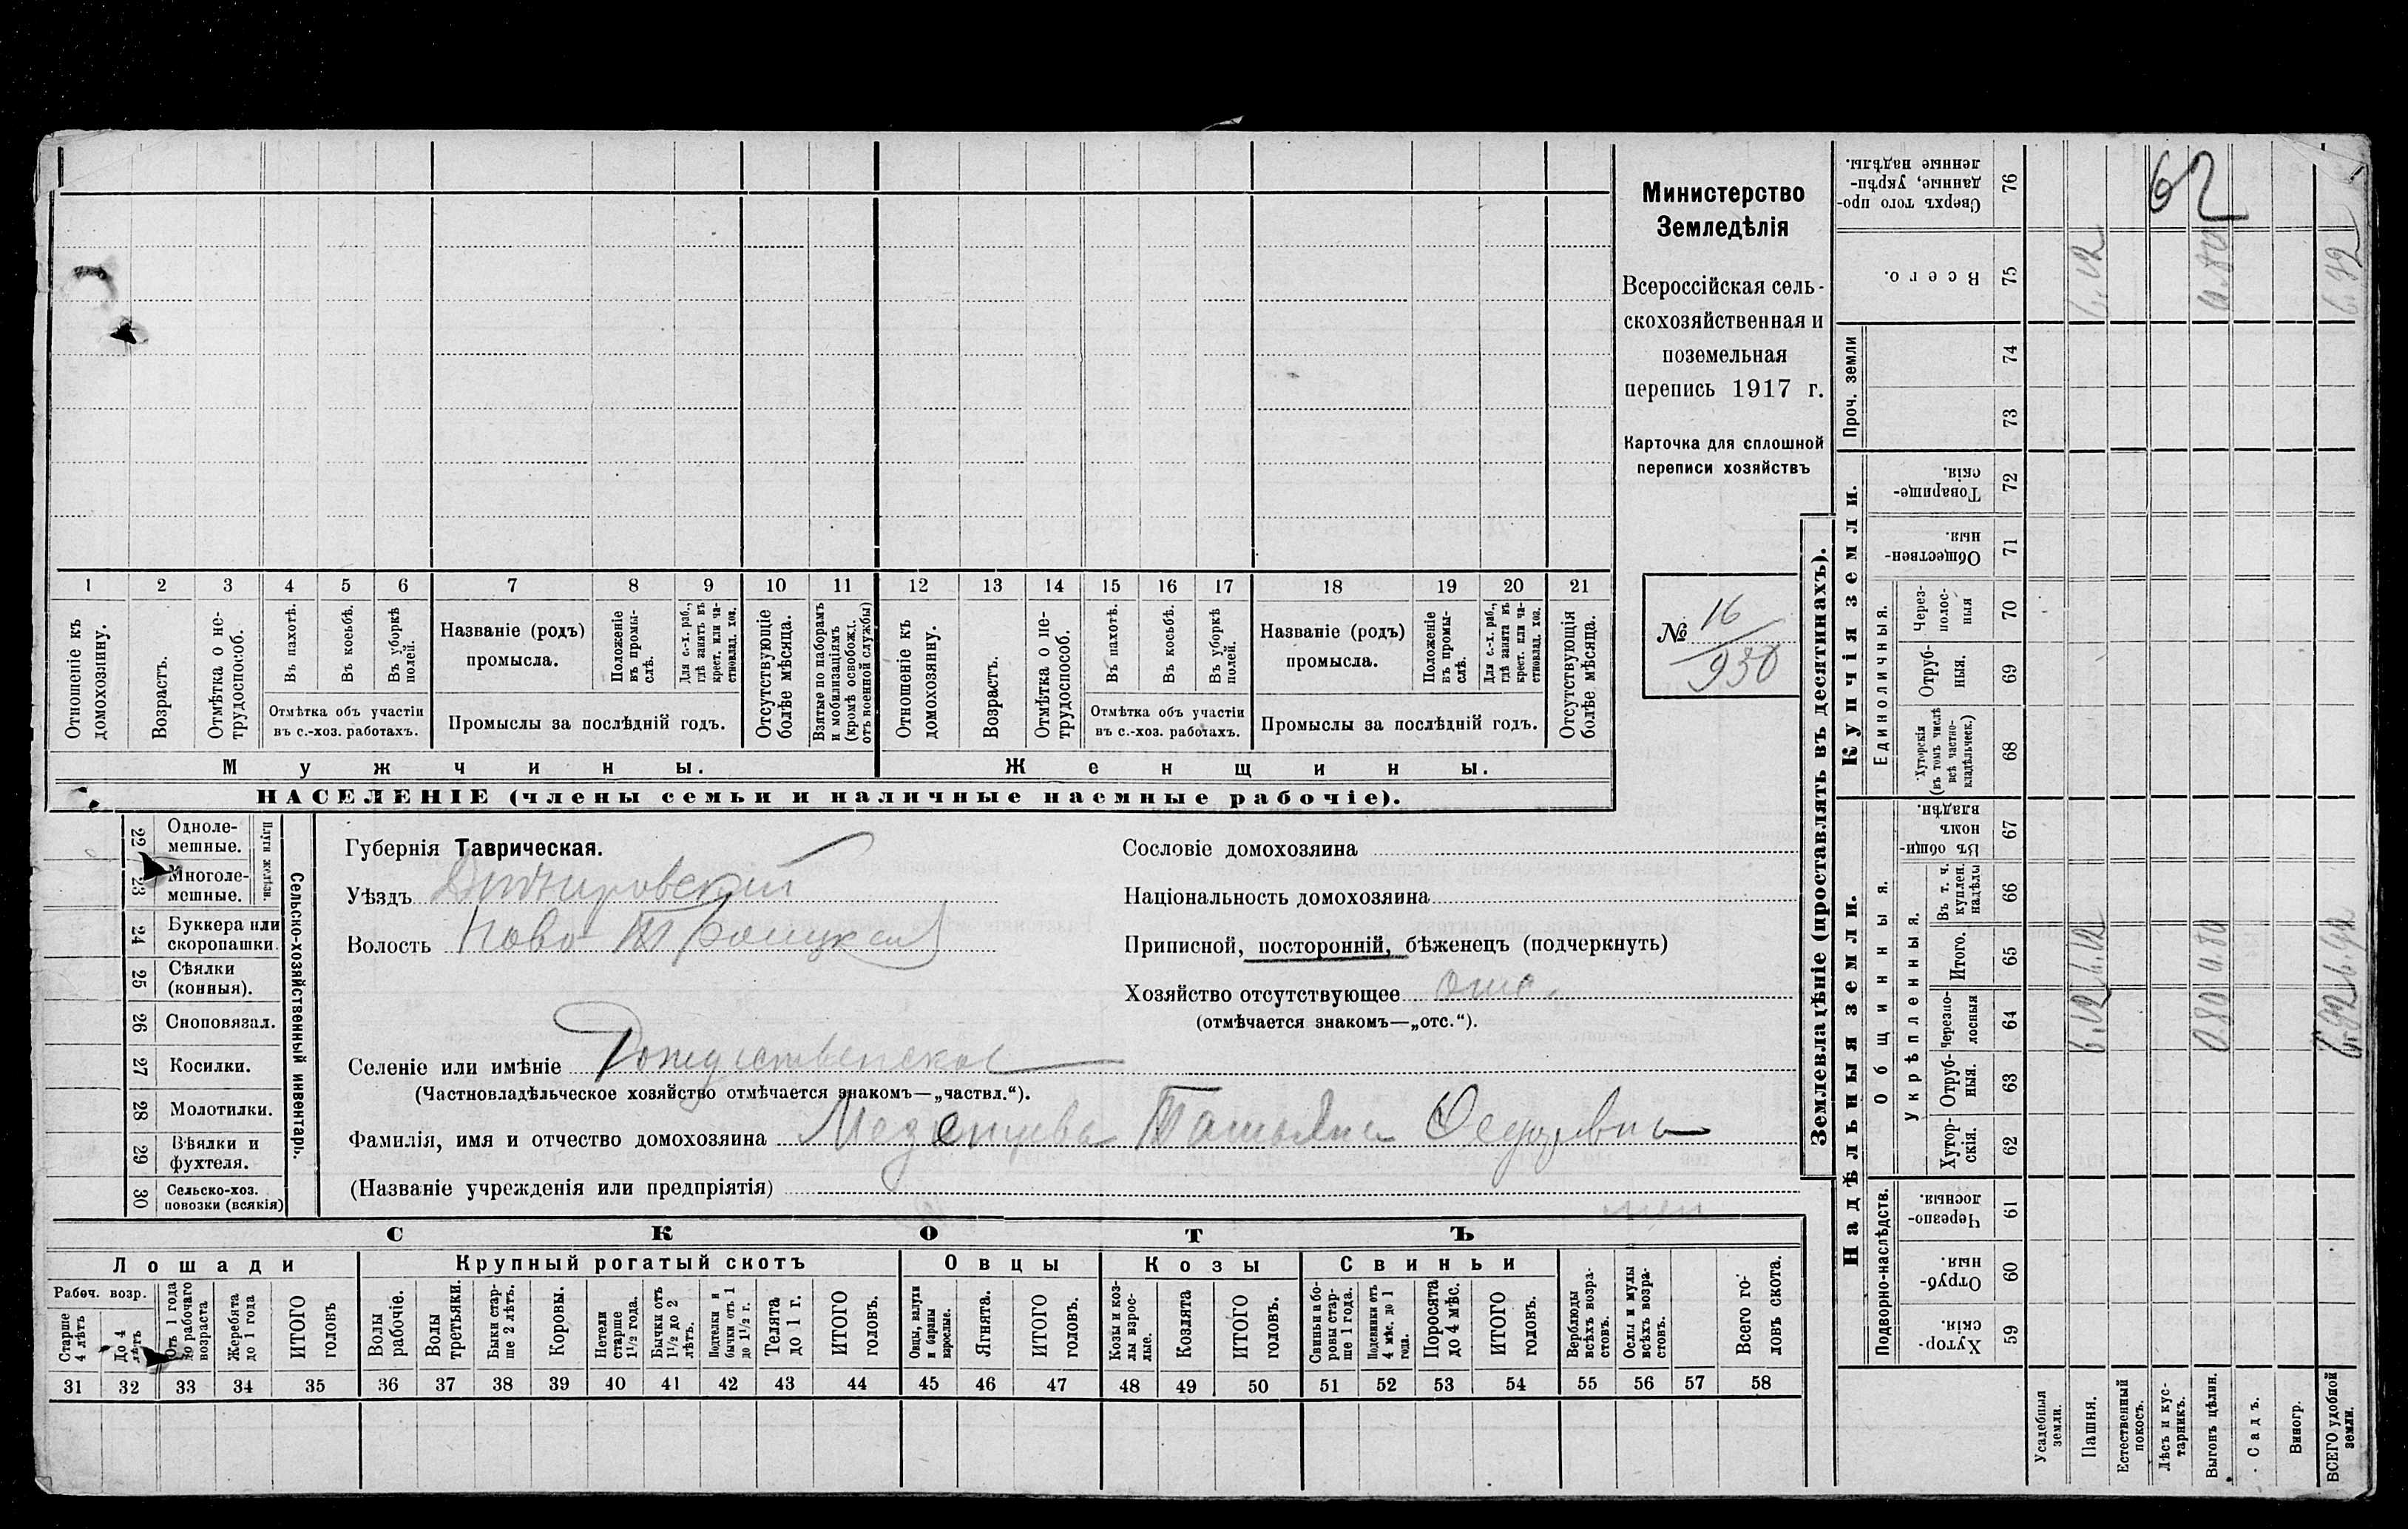 1 2 3 4 5 6 7 8 9 10 11 12 13 14 15 16 17 18 19 20 21
Отношеніе къ домохозяину.
Возрастъ.
Отмѣтка о не-
трудоспособ.
Въ пахотѣ.
Въ косьбѣ.
Въ уборкѣ
полей.
Отмѣтка объ участіи
въ с.-хоз. работахъ.
Названіе (родъ)
промысла.
Положеніе
въ промы-
слѣ.
Для с.-х. раб.,
гдѣ занятъ въ
крест. или ча-
стновлад. хоз.
Промыслы за послѣдній годъ.
Отсутствующіе
болѣе мѣсяца.
Взятые по наборамъ
и мобилизаціямъ
(кромѣ освобожд.
отъ военной службы)
Отношеніе къ
домохозяину.
Возрастъ.
Отмѣтка о не-
трудоспособ.
Въ пахотѣ.
Въ косьбѣ.
Въ уборкѣ
полей.
Отмѣтка объ участіи
въ с.-хоз. работахъ.
Названіе (родъ)
промысла.
Положеніе
въ промы-
слѣ.
Для с.-х. раб.,
гдѣ занята въ
крест. или ча-
стновлад. хоз.
Промыслы за послѣдній годъ.
Отсутствующія
болѣе мѣсяца.
Мужчины.
Женщины.
НАСЕЛЕНІЕ (члены семьи и наличные наемные рабочіе).
Министерство
Земледѣлія
Всероссійская сель-
скохозяйственная и
поземельная
перепись 1917 г.
Карточка для сплошной
переписи хозяйствъ
№ 16
930
22 Одноле-
мешные.
23 Многоле-
мешные.
Плуги желѣзн.
24 Буккера или
скоропашки.
25 Сѣялки
(конныя).
26 Сноповязал.
27 Косилки.
28 Молотилки.
29 Вѣялки и
фухтеля.
30 Сельско-хоз.
повозки (всякія)
Сельско-хозяйственный инвентарь.
Губернія Таврическая.
Уѣздъ Днѣпровскій
Волость Ново-Троицкая
Селеніе или имѣніе Рождественское
(Частновладѣльческое хозяйство отмѣчается знакомъ—„частвл.“).
Фамилія, имя и отчество домохозяина Меденцева Татьяна Федоровна
(Названіе учрежденія или предпріятія)
Сословіе домохозяина
Національность домохозяина
Приписной, посторонній, бѣженецъ (подчеркнуть)
Хозяйство отсутствующее отс.
(отмѣчается знакомъ—„отс.“).
СКОТЪ
Лошади
Рабоч. возр.
Старше
4 лѣтъ
До 4
лѣтъ
Отъ 1 года
до рабочаго
возраста
Жеребята
до 1 года
ИТОГО
головъ
Крупный рогатый скотъ
Волы
рабочіе.
Волы
третьяки.
Быки стар-
ше 2 лѣтъ.
Коровы.
Нетели
старше
1½ года.
Бычки отъ
1½ до 2
лѣтъ.
Подтелки и
бычки отъ 1
до 1½ г.
Телята
до 1 г.
ИТОГО
головъ.
Овцы
Овцы, валухи
и бараны
взрослые.
Ягнята.
ИТОГО
головъ.
Козы
Козы и коз-
лы взрос-
лые.
Козлята
ИТОГО
головъ.
Свиньи
Свиньи и бо-
ровы стар-
ше 1 года.
Подсвинки отъ
4 мѣс. до 1
года.
Поросята
до 4 мѣс.
ИТОГО
головъ.
Верблюды
всѣхъ возра-
стовъ.
Ослы и мулы
всѣхъ возра-
стовъ.
Всего го-
ловъ скота.
31 32 33 34 35 36 37 38 39 40 41 42 43 44 45 46 47 48 49 50 51 52 53 54 55 56 57 58
Землевладѣніе (проставлять въ десятинахъ).
Надѣльныя земли.
Купчія земли.
Проч. земли
Подворно-наслѣдств.
Общинныя.
Укрѣпленныя.
Единоличныя.
Сверхъ того про-
данные, укрѣп-
ленные надѣлы. 76
Всего. 75
74
73
Товарище-
скія. 72
Обществен-
ныя. 71
Через-
полос-
ныя 70
Отруб-
ныя. 69
Хуторскія
(въ томъ числѣ
всѣ частно-
владѣльческ.) 68
Въ общин-
номъ
владѣн. 67
Въ т. ч.
куплен.
надѣлы 66
Итого. 65
Черезпо-
лосныя 64
Отруб-
ныя. 63
Хутор-
скія. 62
Черезпо-
лосныя. 61
Отруб-
ныя. 60
Хутор-
скія. 59
Усадебныя
земли.
Пашня. 6.12 6.12 6.12
Естественный
покосъ.
Лѣсъ и кус-
тарникъ.
Выгонъ цѣлин. 0.80 0.80 0.80
Садъ.
Виногр.
ВСЕГО удобной
земли. 6.92 6.92 6.92
62